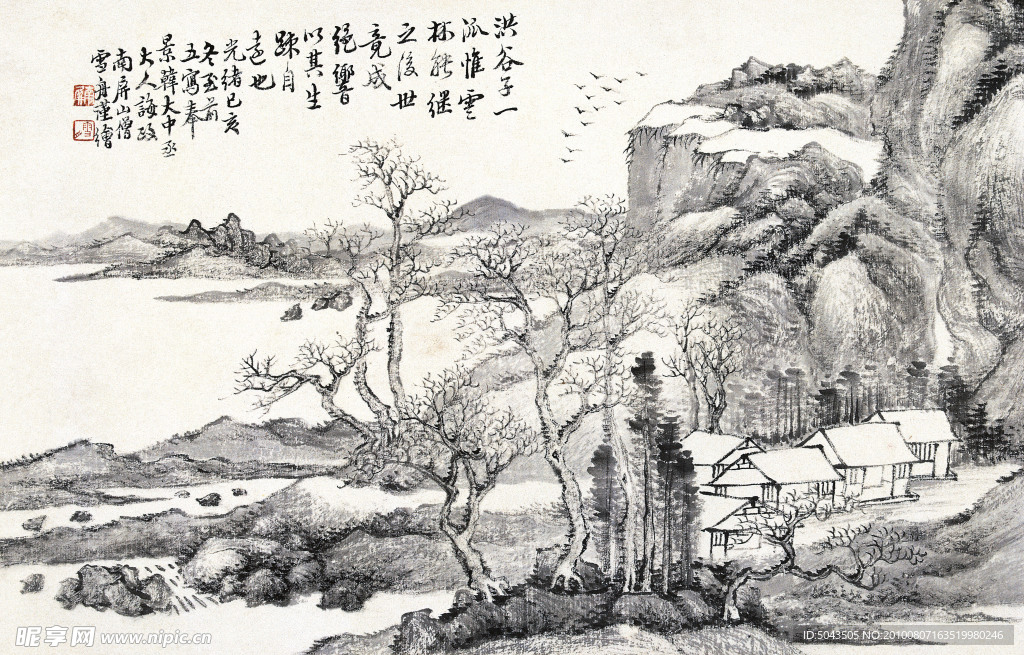 洪谷子一
派惟雲
林能繼
之後世
竟成
絕響
以其生
疎自
遠也
光緒己亥
冬至前
五寫奉
景韓大中丞
大人誨政
南屏山僧
雪舟謹繪
昵享网 www.nipic.cn
ID:5043505 NO:20100807163519980246